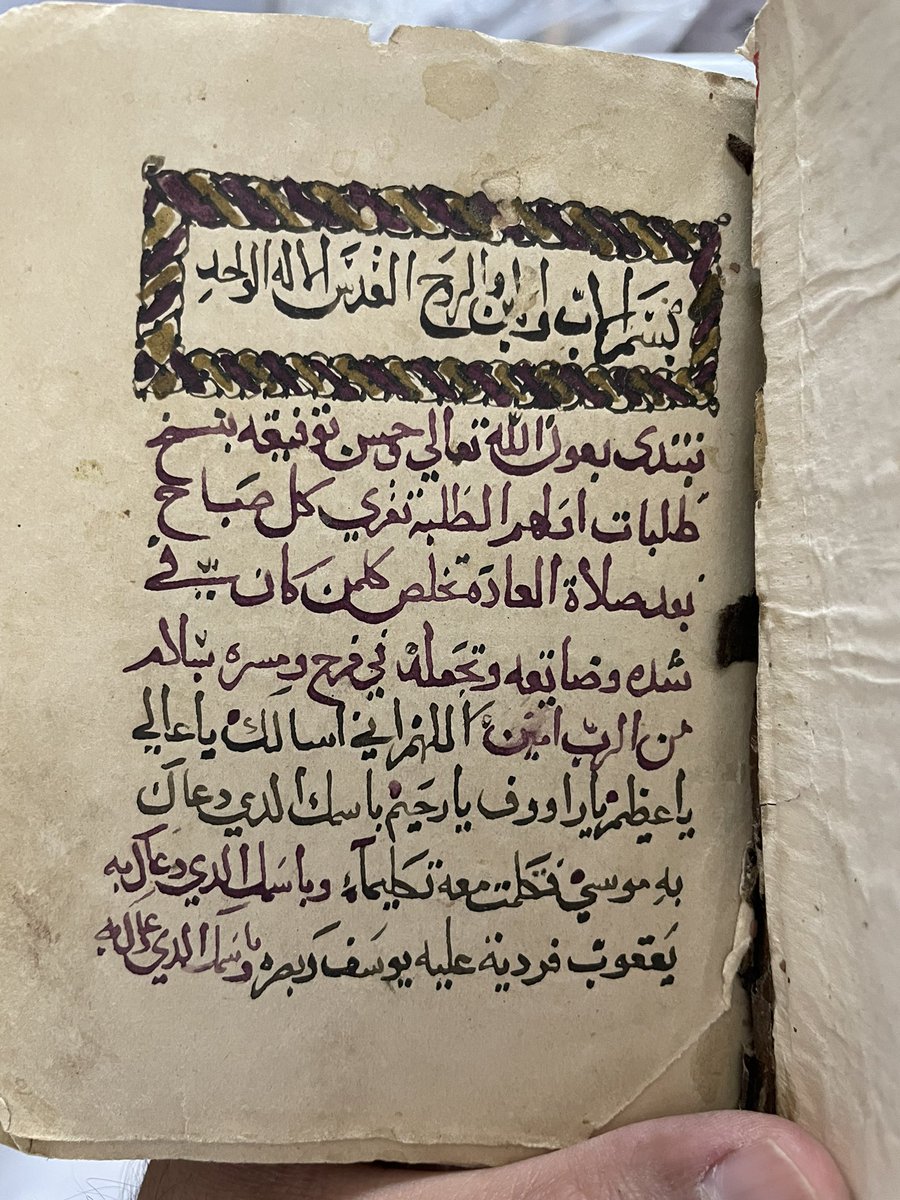 بسم الاب والابن والروح القدس الاله الواحد
نبتدى بعون الله تعالي وحسن توفيقه بنسخ
طلبات اولهم الطلبه تقري كل صباح
بعد صلاة العاده تخلص كلمن كان في
شده وضايقه وتجعله في فرح ومسره بسلام
من الرب امين اللهم اني اسالك يا عالي
يا عظيم يا راووف يا رحيم باسمك الدي دعاك
به موسي فكلمت معه تكليماً وباسمك الدي دعاك به
يعقوب فرديت عليه يوسف وبصره وباسمك الدي دعاك به